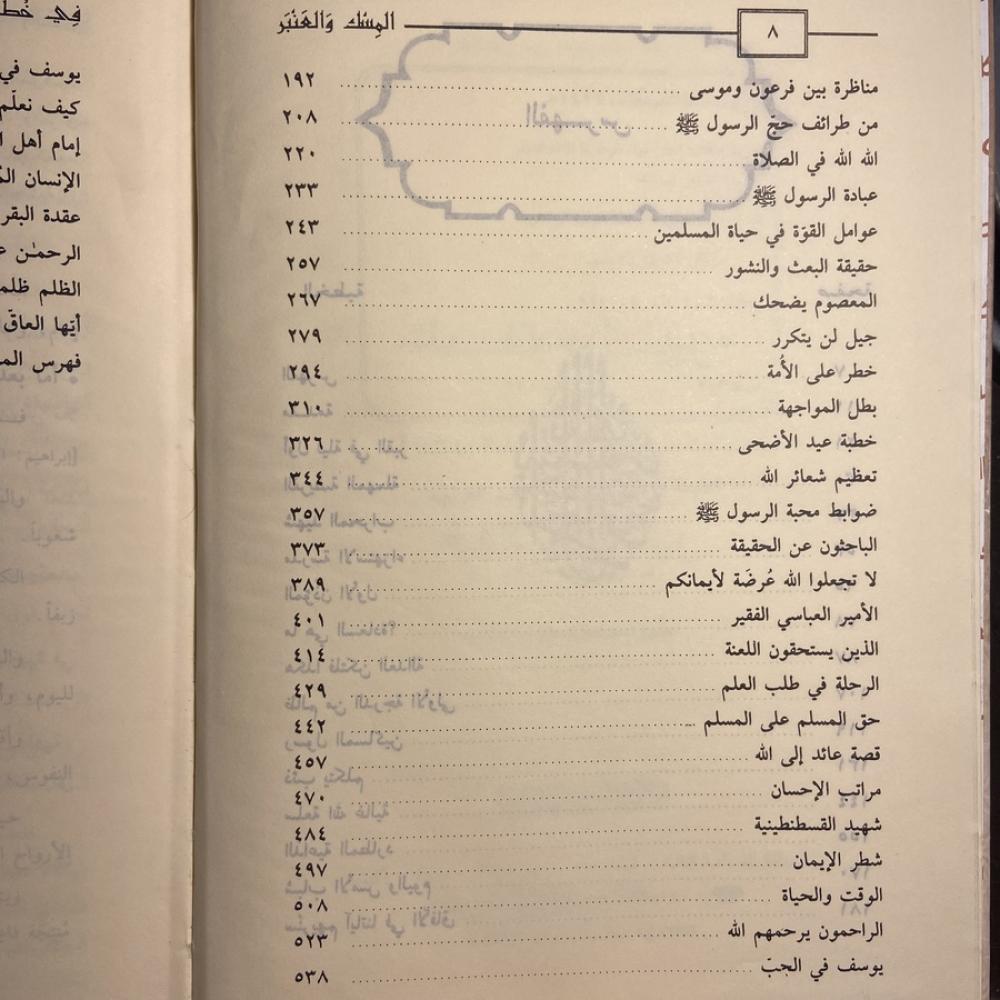 ٨ المِسْك وَالعَنْبَر
مناظرة بين فرعون وموسى ١٩٢
من طرائف حجّ الرسول ﷺ ٢٠٨
الله الله في الصلاة ٢٢٠
عبادة الرسول ﷺ ٢٣٣
عوامل القوّة في حياة المسلمين ٢٤٣
حقيقة البعث والنشور ٢٥٧
المعصوم يضحك ٢٦٧
جيل لن يتكرر ٢٧٩
خطر على الأُمة ٢٩٤
بطل المواجهة ٣١٠
خطبة عيد الأضحى ٣٢٦
تعظيم شعائر الله ٣٤٤
ضوابط محبة الرسول ﷺ ٣٥٧
الباحثون عن الحقيقة ٣٧٣
لا تجعلوا الله عُرضَة لأيمانكم ٣٨٩
الأمير العباسي الفقير ٤٠١
الذين يستحقون اللعنة ٤١٤
الرحلة في طلب العلم ٤٢٩
حق المسلم على المسلم ٤٤٢
قصة عائد إلى الله ٤٥٧
مراتب الإحسان ٤٧٠
شهيد القسطنطينية ٤٨٤
شطر الإيمان ٤٩٧
الوقت والحياة ٥٠٨
الراحمون يرحمهم الله ٥٢٣
يوسف في الجبّ ٥٣٨
يوسف في
كيف نعلّم
إمام أهل
الإنسان
عقدة البقر
الرحمٰن
الظلم ظلم
أيّها العاقّ
فهرس